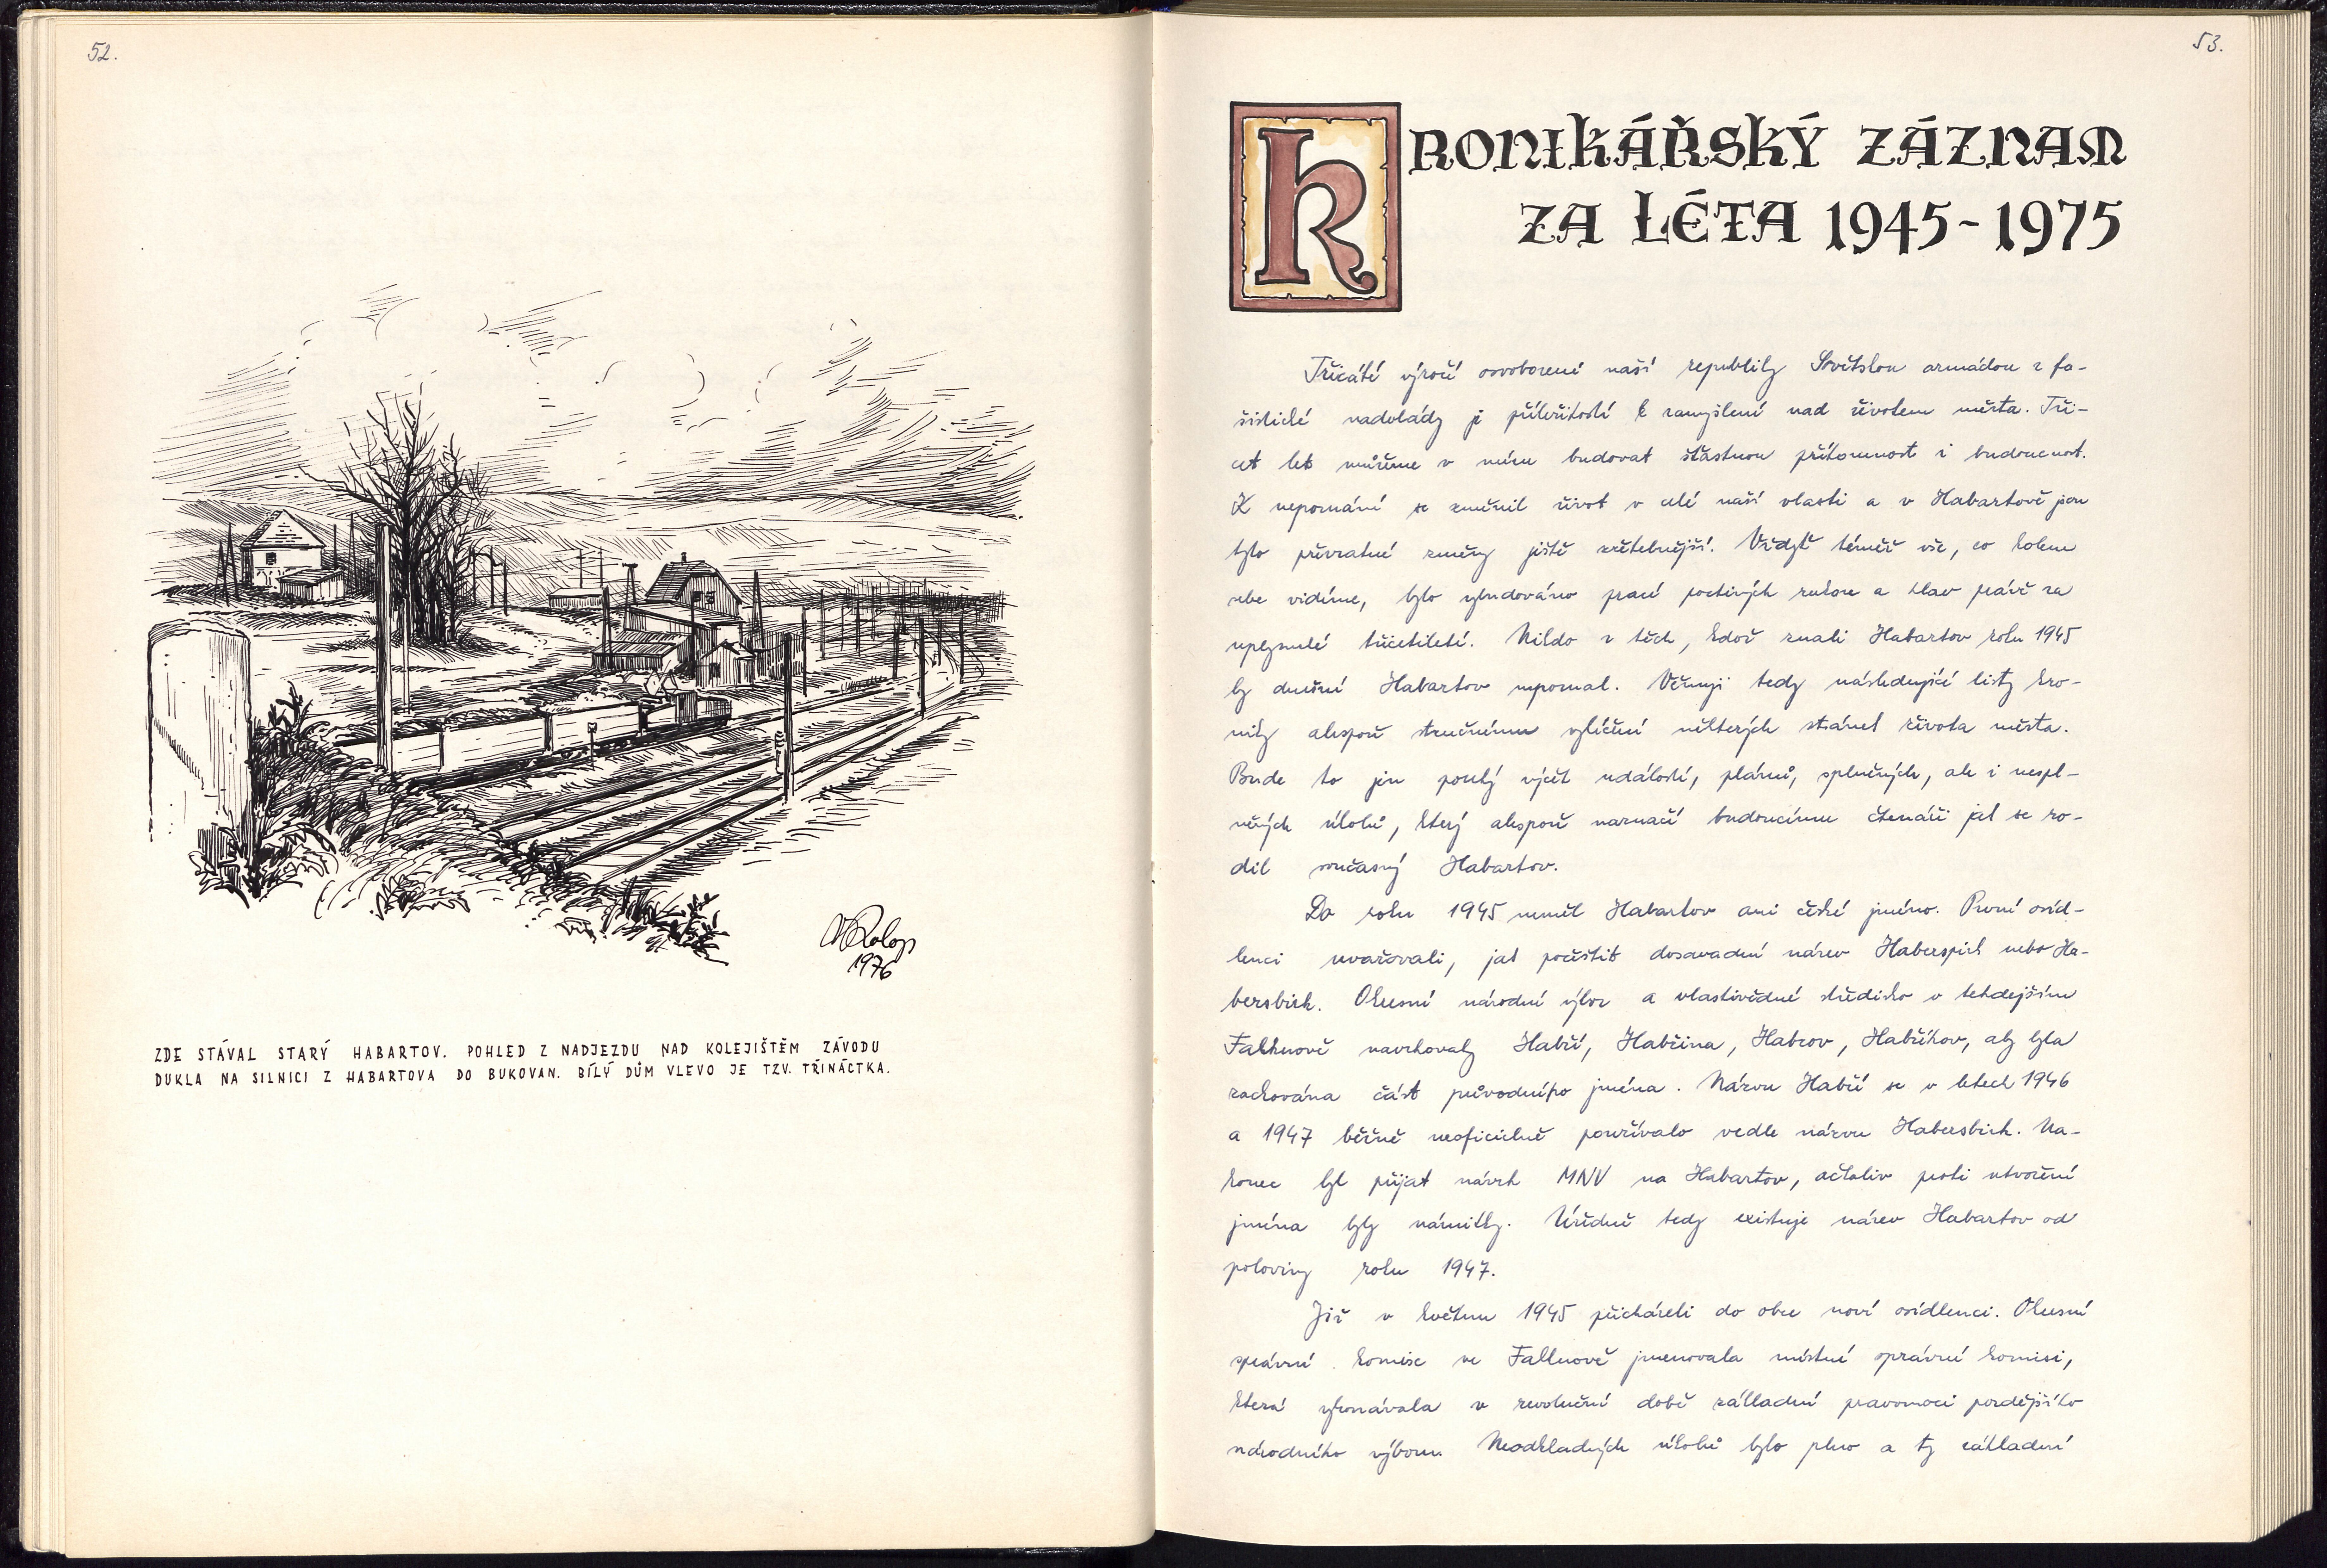 52.
V Rolop
1976
ZDE STÁVAL STARÝ HABARTOV. POHLED Z NADJEZDU NAD KOLEJIŠTĚM ZÁVODU
DUKLA NA SILNICI Z HABARTOVA DO BUKOVAN. BÍLÝ DŮM VLEVO JE TZV. TŘINÁCTKA.
53.
KRONIKÁŘSKÝ ZÁZNAM
ZA LÉTA 1945-1975
Třicáté výročí osvobození naší republiky Sovětskou armádou z fa-
šistické nadvlády je příležitostí k zamyšlení nad životem města. Tři-
cet let můžeme v míru budovat šťastnou přítomnost i budoucnost.
K nepoznání se změnil život v celé naší vlasti a v Habartově jsou
tyto převratné změny ještě zřetelnější. Vždyť téměř vše, co kolem
sebe vidíme, bylo vybudováno prací poctivých rukou a hlav právě za
uplynulé třicetiletí. Nikdo z těch, kdož znali Habartov roku 1945
by dnešní Habartov nepoznal. Věnuji tedy následující listy kro-
niky alespoň stručnému vylíčení některých stránek života města.
Bude to jen pouhý výčet událostí, plánů, splněných, ale i nespl-
něných úkolů, který alespoň naznačí budoucímu čtenáři jak se ro-
dil současný Habartov.
Do roku 1945 neměl Habartov ani české jméno. První osíd-
lenci uvažovali, jak počeštit dosavadní název Haberspirk nebo Ha-
bersbirk. Okresní národní výbor a vlastivědné středisko v tehdejším
Falknově navrhovaly Habří, Habřina, Habrov, Habříkov, aby byla
zachována část původního jména. Názvu Habří se v letech 1946
a 1947 běžně neoficielně používalo vedle názvu Habersbirk. Na-
konec byl přijat návrh MNV na Habartov, ačkoliv proti utvoření
jména byly námitky. Úředně tedy existuje název Habartov od
poloviny roku 1947.
Již v květnu 1945 přicházeli do obce noví osídlenci. Okresní
správní komise ve Falknově jmenovala místní správní komisi,
která vykonávala v revoluční době základní pravomoci pozdějšího
národního výboru. Neodkladných úkolů bylo plno a ty základní